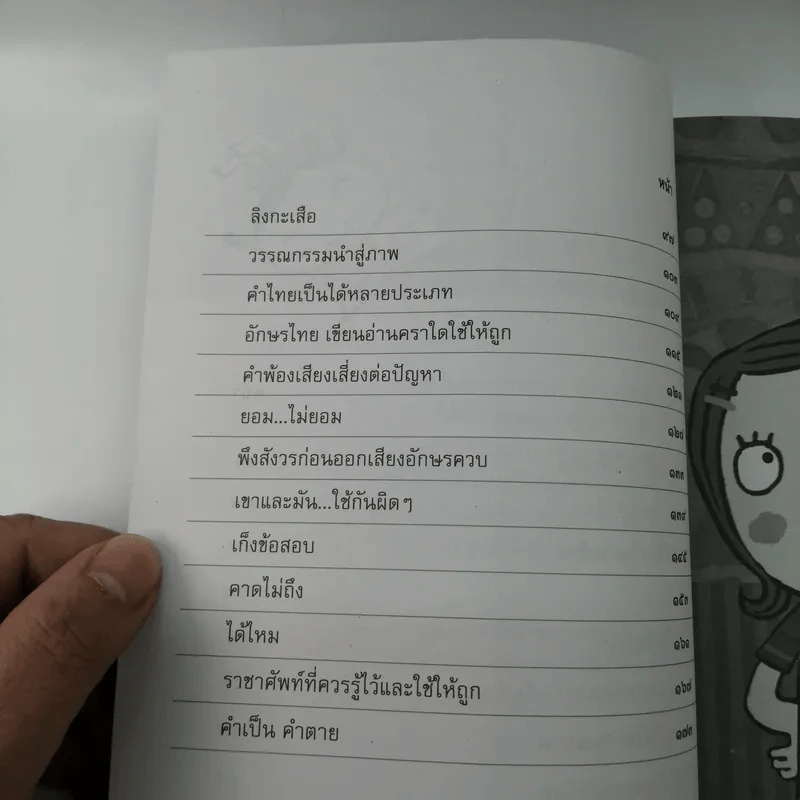 หน้า
ลิงกะเสือ ๙๗
วรรณกรรมนำสู่ภาพ ๑๐๓
คำไทยเป็นได้หลายประเภท ๑๐๙
อักษรไทย เขียนอ่านคราใดใช้ให้ถูก ๑๑๕
คำพ้องเสียงเสี่ยงต่อปัญหา ๑๒๑
ยอม...ไม่ยอม ๑๒๗
พึงสังวรก่อนออกเสียงอักษรควบ ๑๓๓
เขาและมัน...ใช้กันผิดๆ ๑๓๙
เก็งข้อสอบ ๑๔๕
คาดไม่ถึง ๑๕๓
ได้ไหม ๑๖๑
ราชาศัพท์ที่ควรรู้ไว้และใช้ให้ถูก ๑๖๗
คำเป็น คำตาย ๑๗๓